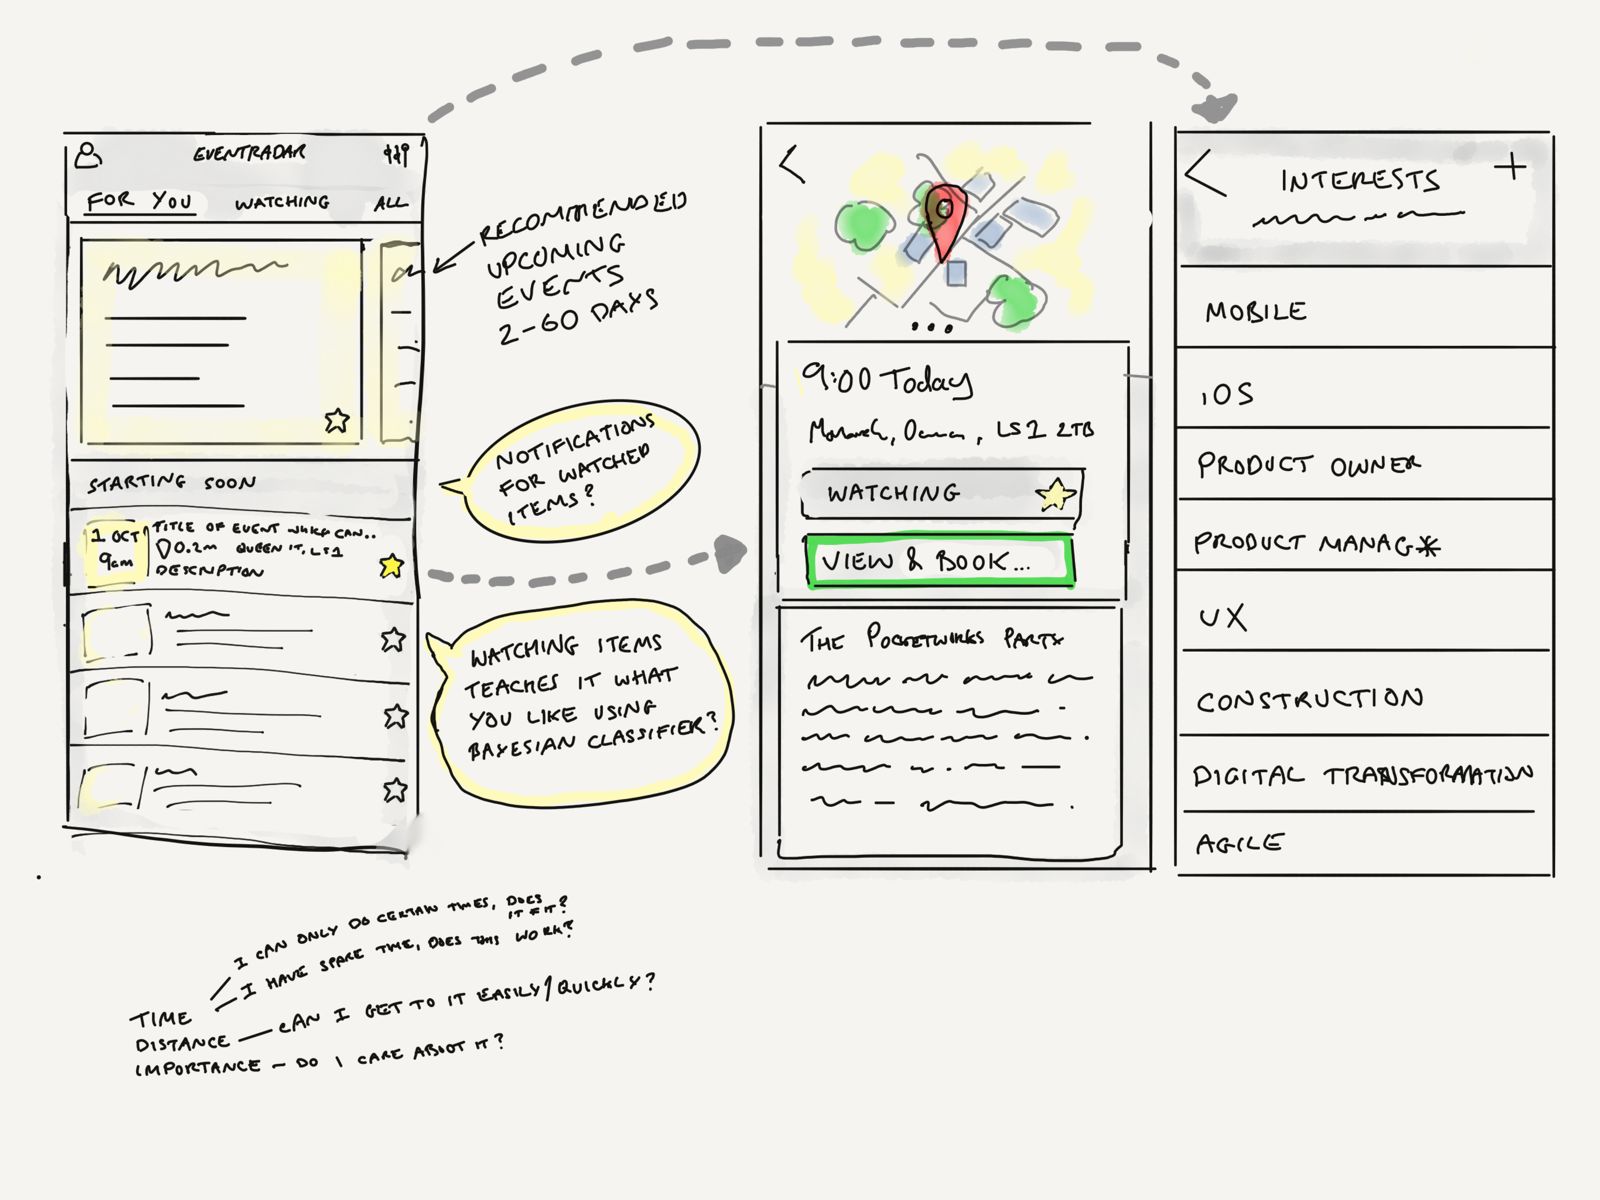 EVENTRADAR
FOR YOU WATCHING ALL
STARTING SOON
1 OCT
9am
TITLE OF EVENT WHICH CAN..
0.2m QUEEN ST, LS1
DESCRIPTION
RECOMMENDED
UPCOMING
EVENTS
2-60 DAYS
NOTIFICATIONS
FOR WATCHED
ITEMS?
WATCHING ITEMS
TEACHES IT WHAT
YOU LIKE USING
BAYESIAN CLASSIFIER?
9:00 Today
LS1 2TB
WATCHING
VIEW & BOOK...
THE POCKETWORKS PARTY
INTERESTS
MOBILE
iOS
PRODUCT OWNER
PRODUCT MANAG*
UX
CONSTRUCTION
DIGITAL TRANSFORMATION
AGILE
I CAN ONLY DO CERTAIN TIMES, DOES
IT FIT?
I HAVE SPARE TIME, DOES THIS WORK?
TIME
DISTANCE — CAN I GET TO IT EASILY/QUICKLY?
IMPORTANCE — DO I CARE ABOUT IT?